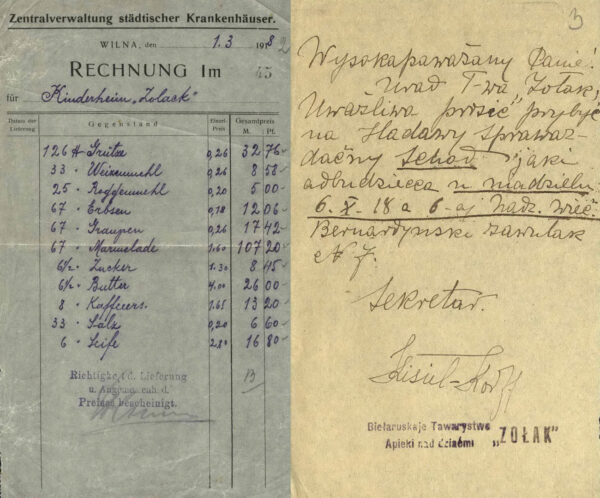 Zentralverwaltung städtischer Krankenhäuser.
WILNA, den 1.3 1918
RECHNUNG Im 45
für Kinderheim „Zolack"
Datum der Lieferung Gegenstand Einzel-Preis Gesamtpreis M. Pf.
126 ℔ Grütze 0,26 32 76
33 " Weizenmehl 0,26 8 58
25 " Roggenmehl 0,20 5 00
67 " Erbsen 0,18 12 06
67 " Graupen 0,26 17 42
67 " Marmelade 1.60 107 20
6½ " Zucker 1.30 8 45
6½ " Butter 4.00 26 00
8 " Kaffeeers. 1.65 13 20
33 " Salz 0,20 6 60
6 " Seife 2.80 16 80
Richtigkeit d. Lieferung
u. Angemessenh. d.
Preises bescheinigt.
3
Wysokapaważany Panie!
Urad T-wa „Zołak"
Uważliwa prosić przybyć
na Hadawy sprawaz-
dačny schod jaki
adbudziecca u niadzielu
6.X.18 a 6-aj hadz. wieč.
Bernardynski zawułak
N 7.
Sekretar.
Kisiel-
Biełaruskaje Tawarystwo
Apieki nad dziaćmi „ZOŁAK"